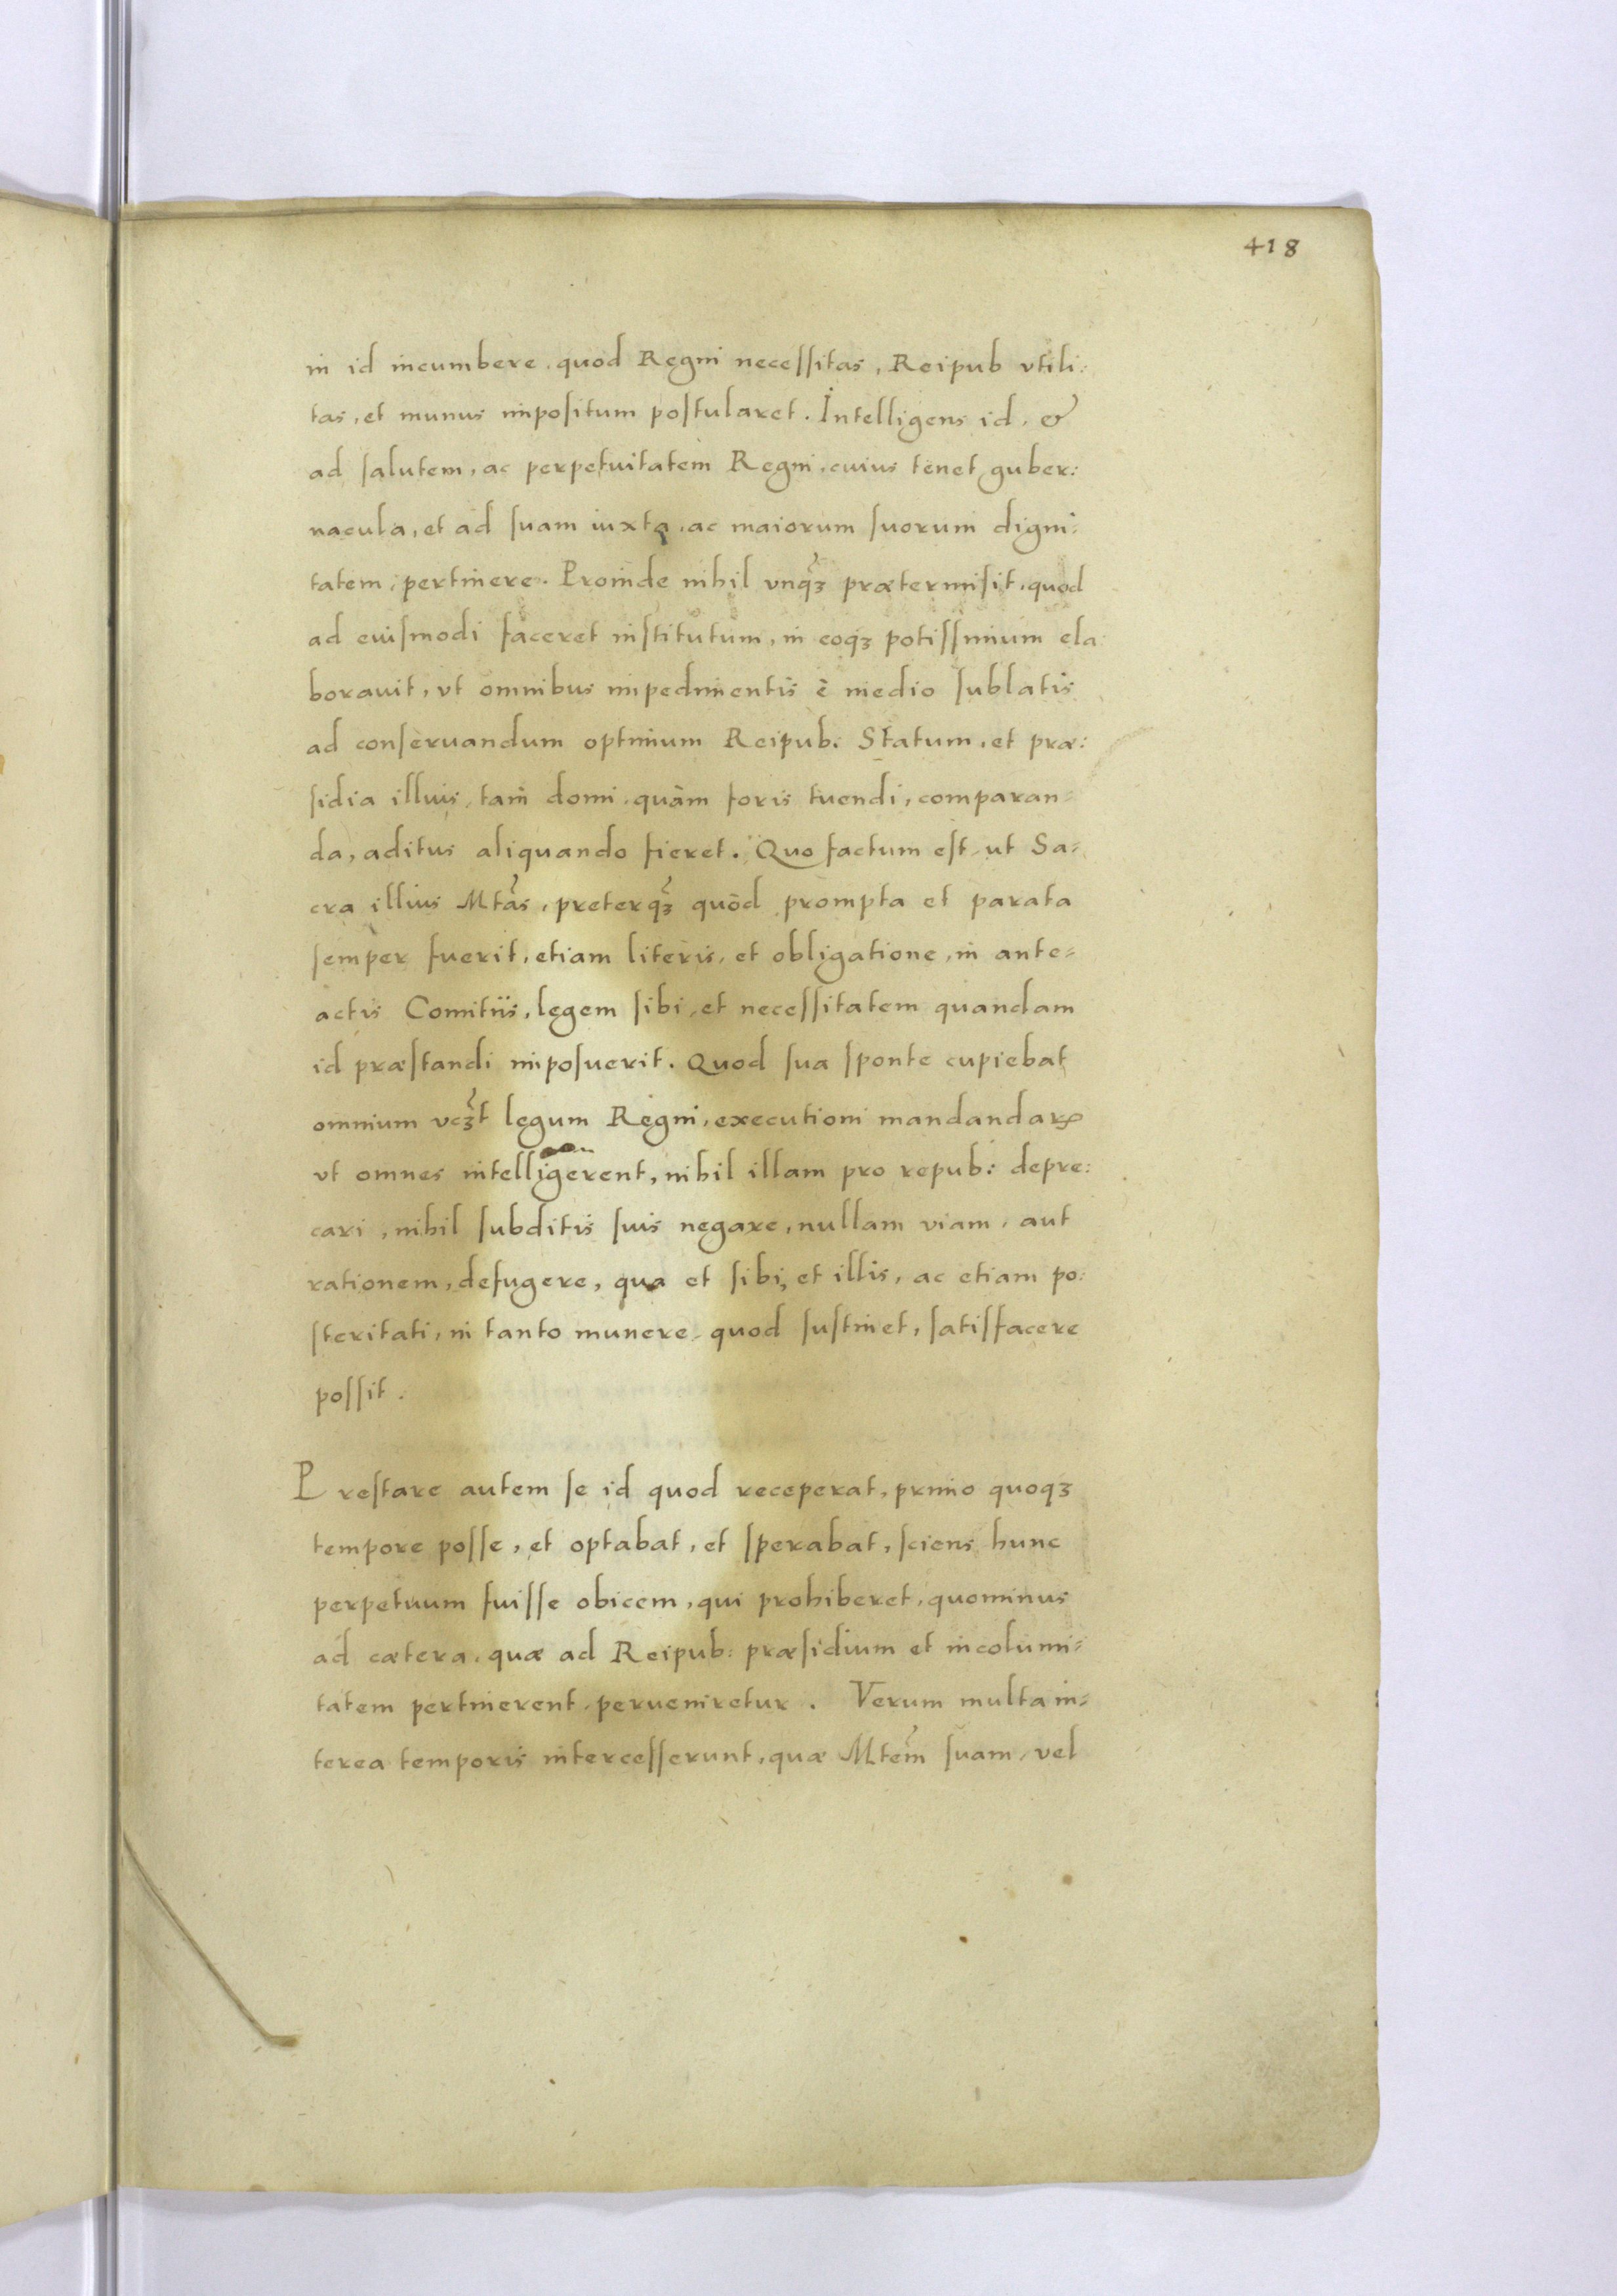 418
in id incumbere, quod Regni necessitas, Reipub vtili:
tas, et munus impositum postularet. Intelligens id, &
ad salutem, ac perpetuitatem Regni, cuius tenet guber:
nacula, et ad suam iuxta, ac maiorum suorum digni:
tatem, pertinere. Proinde nihil vnq̃ꝫ prætermisit, quod
ad euismodi faceret institutum, in eoqꝫ potissimum ela
borauit, vt omnibus impedimentis è medio sublatis
ad conseruandum optimum Reipub. Statum, et præ:
sidia illius, tam domi, quàm foris tuendi, comparan=
da, aditus aliquando fieret. Quo factum est, ut Sa=
cra illius Mtãs, preterq̃ꝫ quòd prompta et parata
semper fuerit, etiam literis, et obligatione, in ante=
actis Comitiis, legem sibi, et necessitatem quandam
id præstandi imposuerit. Quod sua sponte cupiebat
omnium vcꝫ̃t legum Regni, executioni mandandaꝝ
vt omnes intelligerent, nihil illam pro repub: depre:
cari, nihil subditis suis negare, nullam viam, aut
rationem, defugere, qua et sibi, et illis, ac etiam po:
steritati, in tanto munere, quod sustinet, satisfacere
possit.
Prestare autem se id quod receperat, primo quoqꝫ
tempore posse, et optabat, et sperabat, sciens hunc
perpetuum fuisse obicem, qui prohiberet, quominus
ad cætera, quæ ad Reipub: præsidium et incolumi=
tatem pertinerent, perueniretur. Verum multa in=
terea temporis intercesserunt, quæ Mtem̃ suam, vel